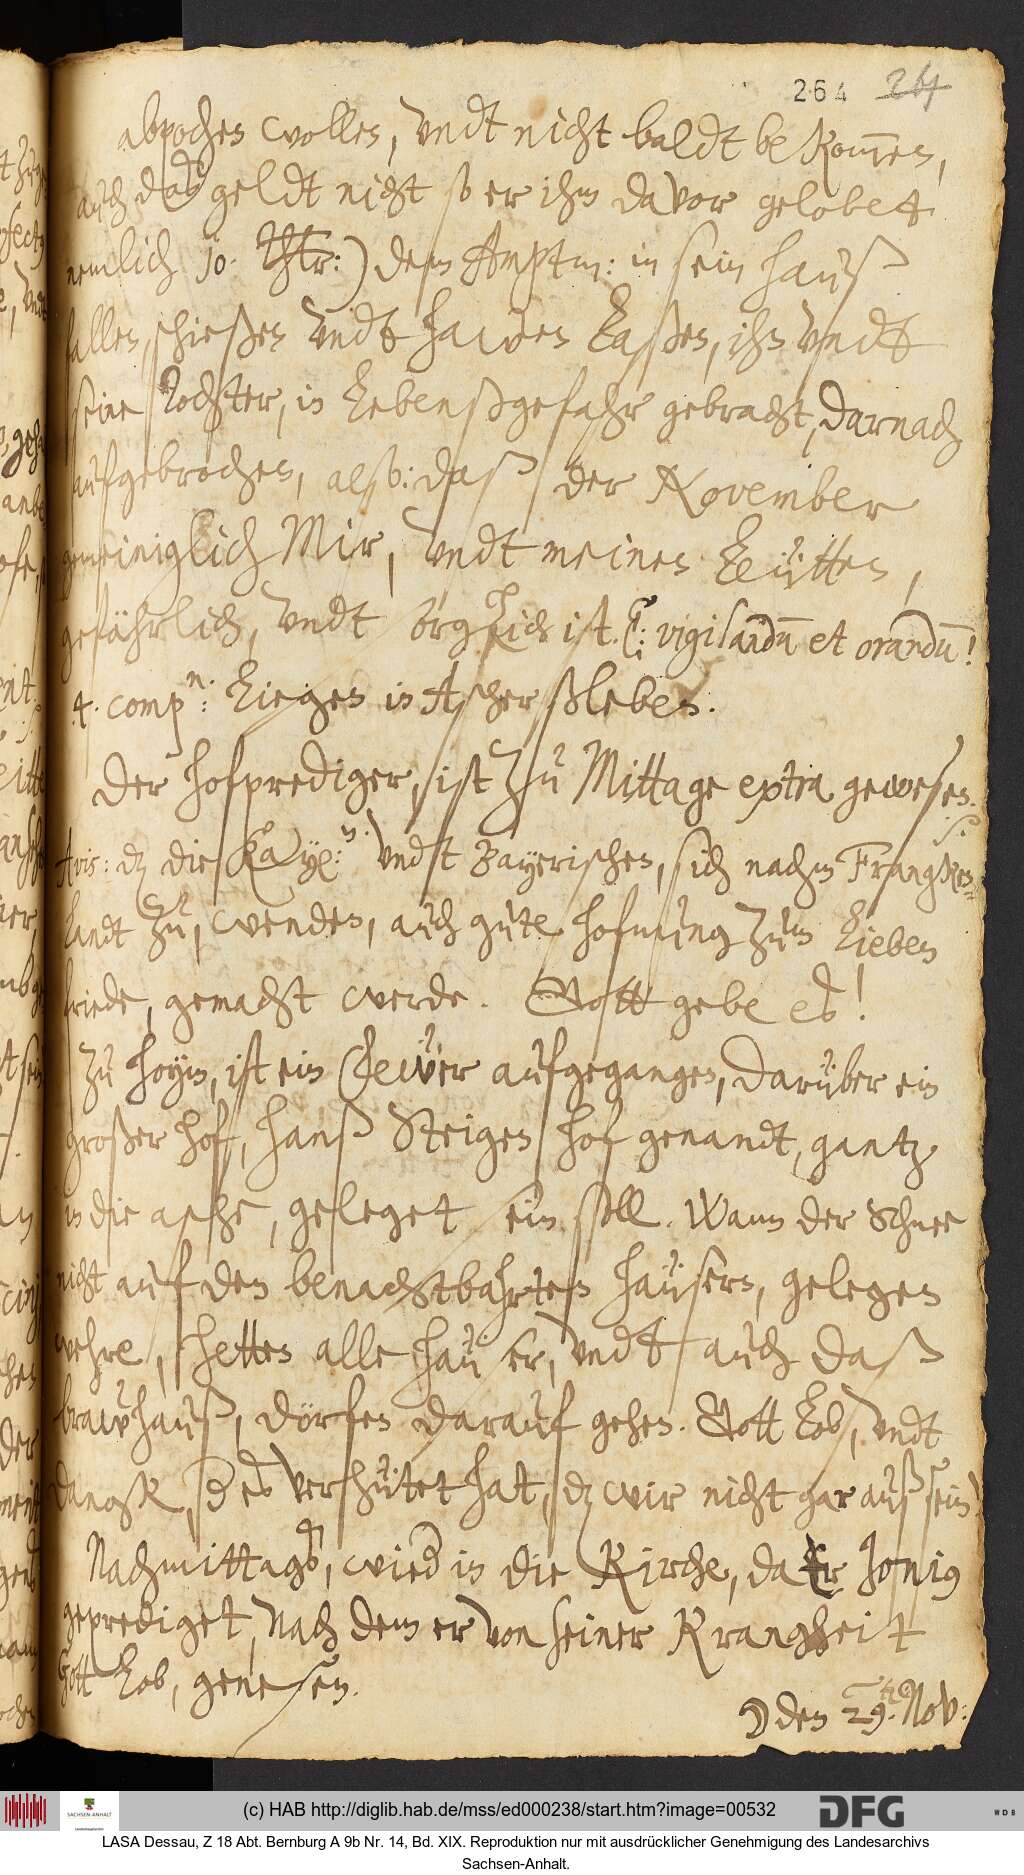 264 264
abpochen wollen, undt nicht baldt bekom̅en,
auch daß geldt nicht so er ihm davor gelobet
nemlich 10 Thlr:) dem Amptm: in sein hauß
fallen, schießen undt hawen laßen, ihn undt
seine Tochter, in Lebenßgefahr gebracht, darnach
aufgebrochen, also: daß der November
gemeiniglich Mir, undt meinen Leütten,
gefährlich, undt örglich ist. (: vigilandū et orandū!
4. compn: liegen in Ascherßleben.
Der hofprediger, ist zu Mittage extra gewesen.
Avis: dz die Kayl:n undt Bayerischen, sich nachm Frangken-
landt zu, wenden, auch gute hofnung zum lieben
friede, gemacht werde. Gott gebe es!
Zu Hoym, ist ein fewer aufgegangen, darüber ein
großer hof, Hanß Steigen hof genandt, gantz
in die asche, geleget sein soll. Wann der Schnee
nicht auf den benachtbahrten haüsern, gelegen
wehre, hetten alle haüser, undt auch daß
brawhauß, dörfen darauf gehen. Gott lob, undt
dangk, der es verhütet hat, dz wir nicht gar auß sein
Nachmittags, wied in die Kirche, da Er Jonius
geprediget, nach dem er von seiner Krangheit
Gott lob, genesen.
☽ den 29. Nov:
(c) HAB http://diglib.hab.de/mss/ed000238/start.htm?image=00532
SACHSEN-ANHALT
DFG
WDB
LASA Dessau, Z 18 Abt. Bernburg A 9b Nr. 14, Bd. XIX. Reproduktion nur mit ausdrücklicher Genehmigung des Landesarchivs
Sachsen-Anhalt.